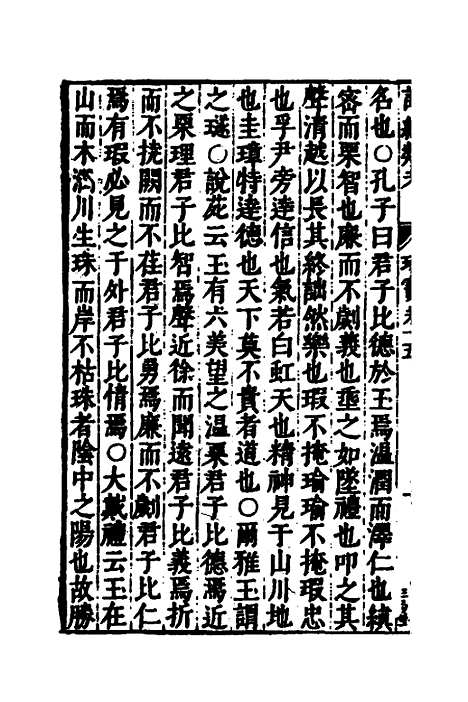 名也〇孔子曰君子比德於玉焉温潤而澤仁也縝
密而栗智也廉而不劌義也垂之如墜禮也叩之其
聲清越以長其終詘然樂也瑕不掩瑜瑜不掩瑕忠
也孚尹旁逹信也氣若白虹天也精神見于山川地
也圭璋特逹德也天下莫不貴者道也〇爾雅玉謂
之璲〇說苑云玉有六美望之温栗君子比德焉近
之栗理君子比智焉聲近徐而聞遠君子比義焉折
而不撓闕而不荏君子比勇焉廉而不劌君子比仁
焉有瑕必見之于外君子比情焉〇大戴禮云玉在
山而木潤川生珠而岸不枯珠者陰中之陽也故勝